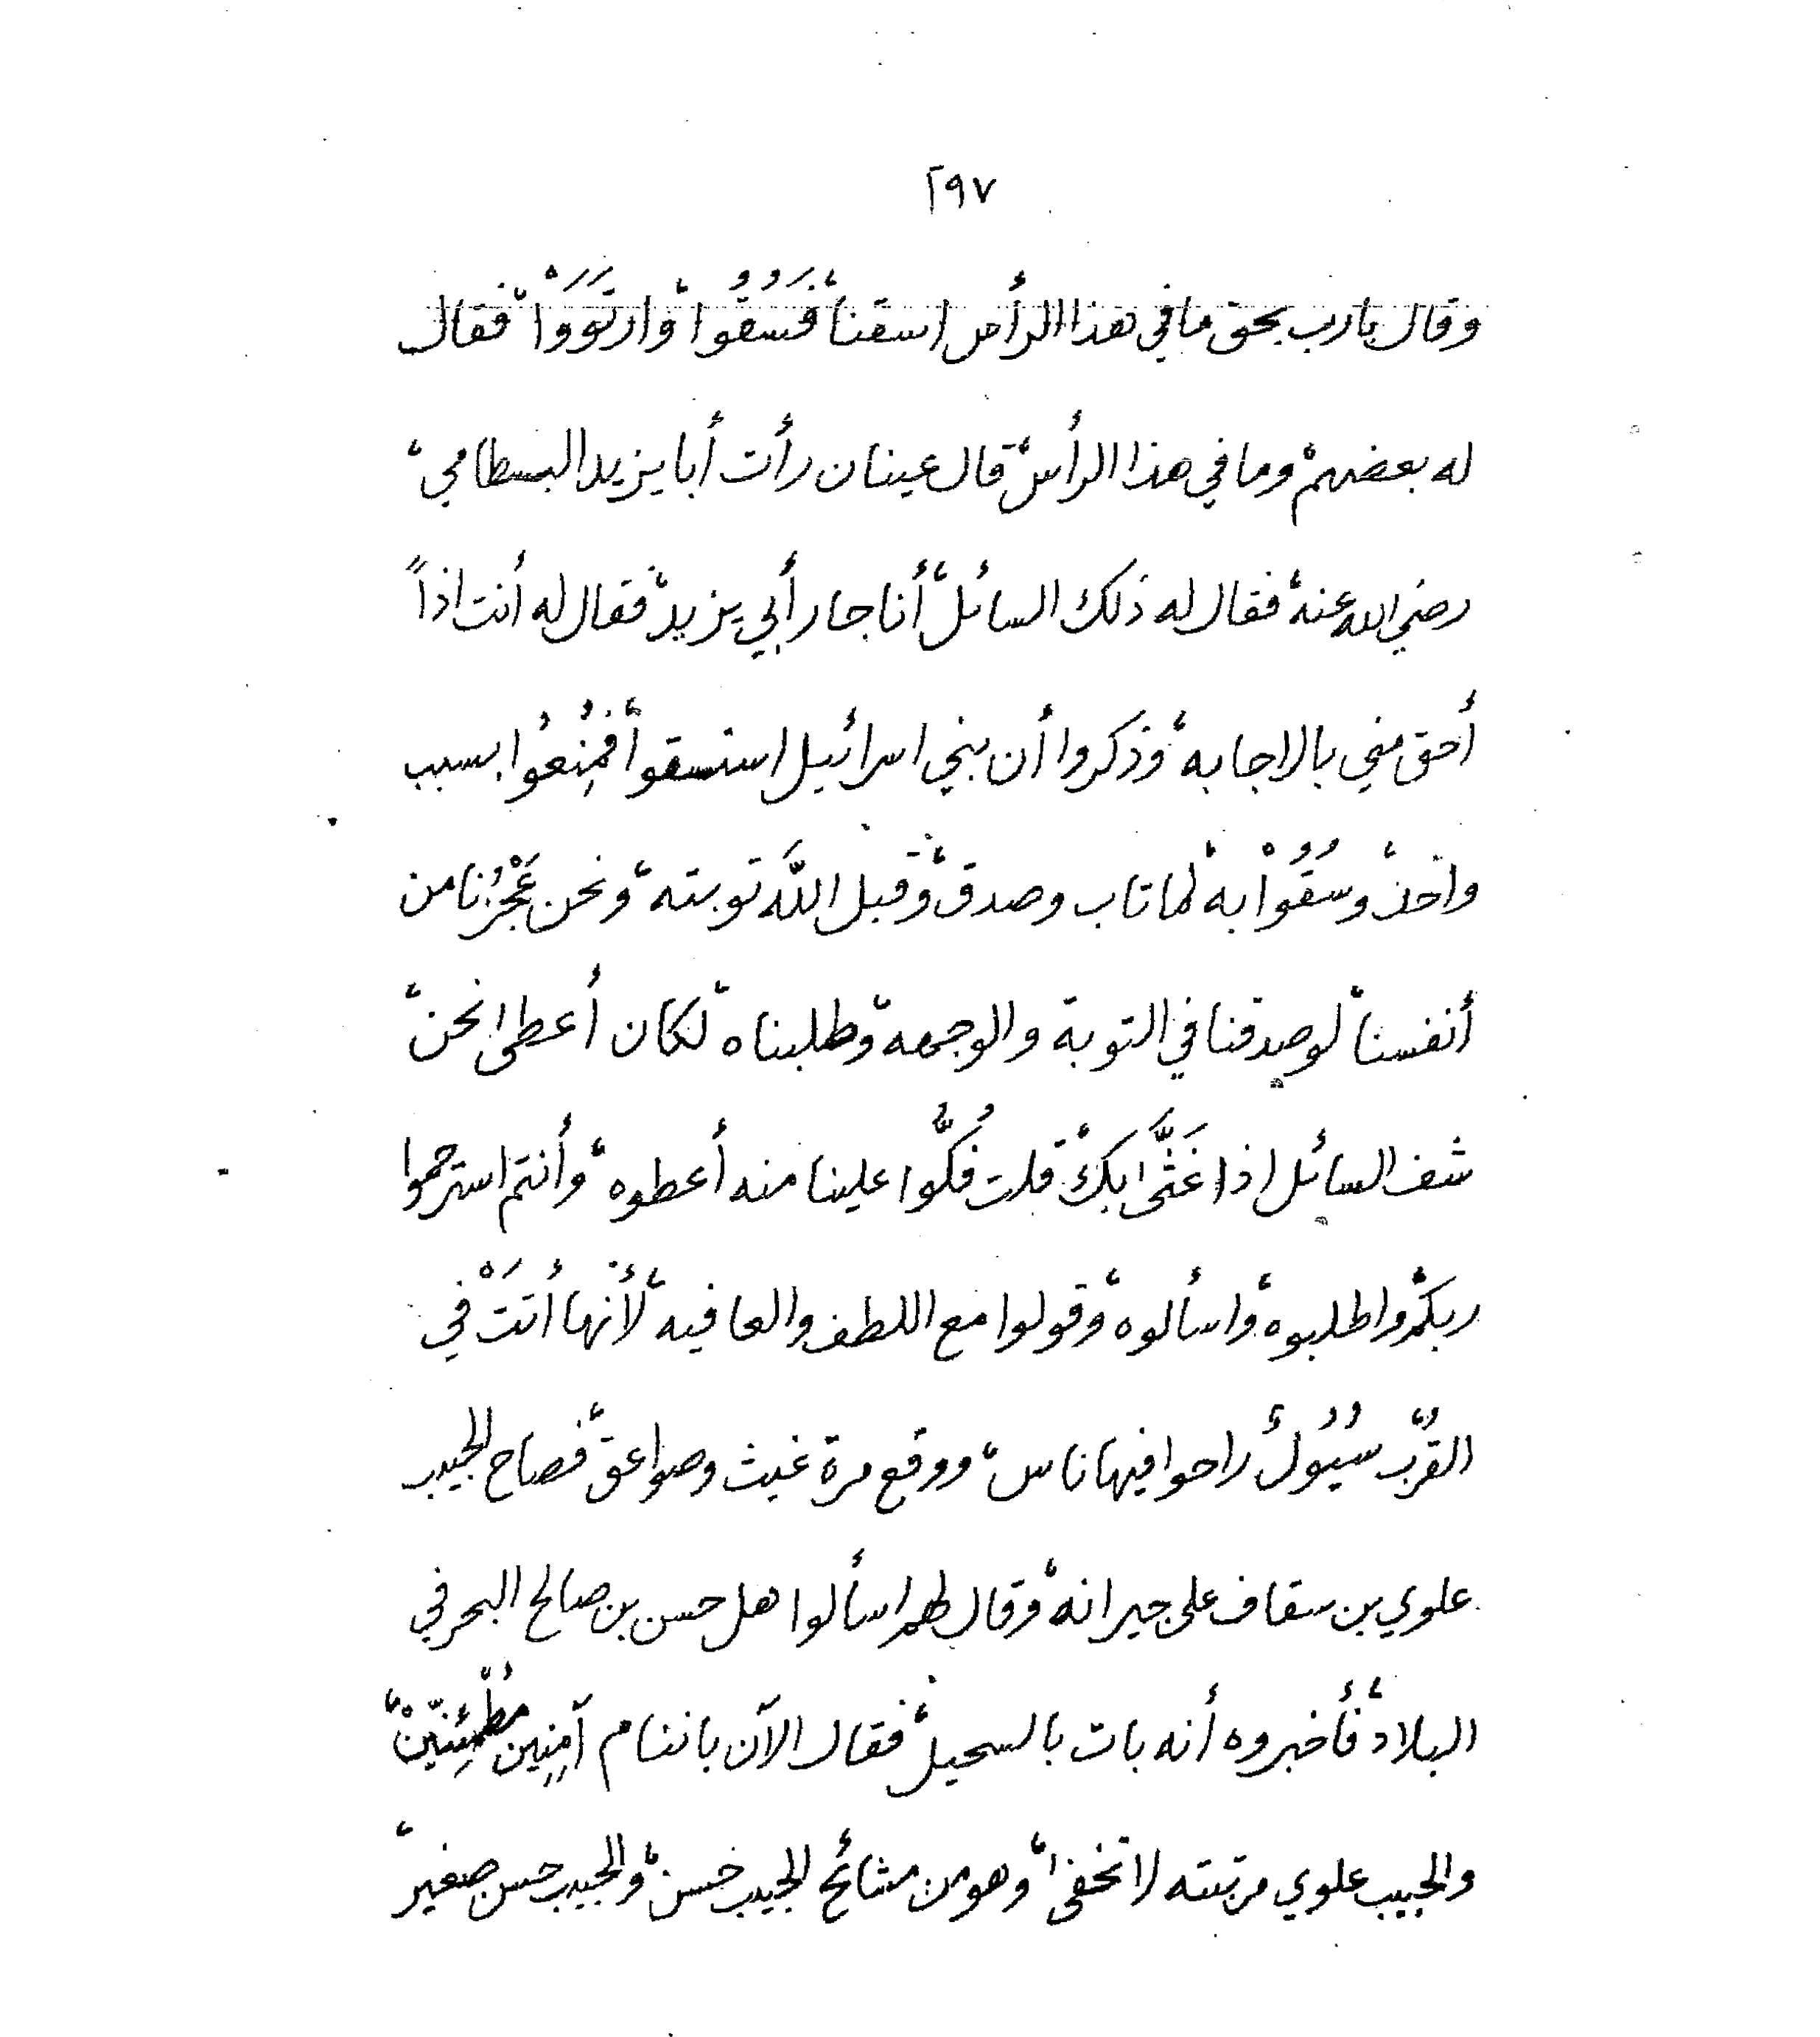 ٢٩٧
وقال يارب بحق ما في هذا الرأس اسقنا، فَسُقُوا، وارتَوَوْا، فقال
له بعضهم، وما في هذا الرأس، قال عينان رأت أبا يزيد البسطامي،
رضي الله عنه، فقال له ذلك السائل، أنا جار أبي يزيد، فقال له أنت اذاً
أحق مني بالاجابه، وذكروا أن بني اسرائيل استسقوا، فَمُنِعُوا بسبب
واحد، وسُقُوْا به، لما تاب وصدق، وقبل اللَّه توبته، ونحن عَجْزُنا من
أنفسنا، لو صدقنا في التوبة والوجهه، وطلبناه، لكان أعطى، نحن،
شف السائل اذا غَثَّى بك، قلت فُكُّوا علينا منه أعطوه، وأنتم استرحموا
ربكم، واطلبوه، واسألوه، وقولوا مع اللطف والعافيه، لأنها أتَتْ في
القُرْب سُيُول، راحوا فيها ناس، ووقع مرة غيث وصواعق، فصاح الحبيب
علوي بن سقاف على جيرانه، وقال لهم اسألوا هل حسن بن صالح البحر في
البلاد، فأخبروه أنه بات بالسحيل، فقال الآن باننام آمِنِين مُطْمَئِنِّينْ،
والحبيب علوي مرتبته لا تخفى، وهو من مشائخ الحبيب حسن، والحبيب حسن صغير،